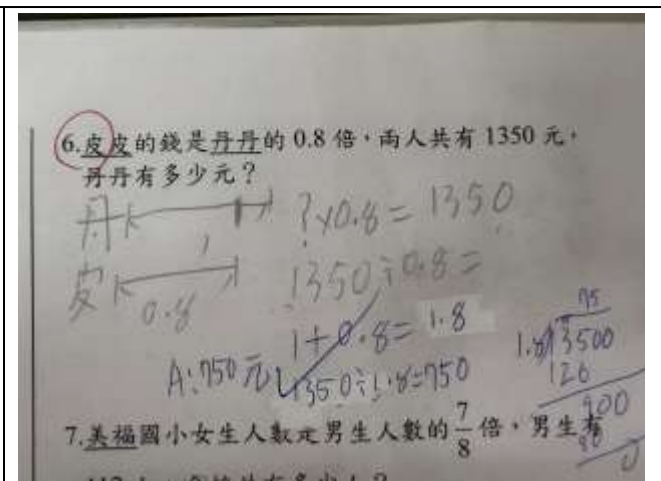 6.皮皮的錢是丹丹的 0.8 倍，兩人共有 1350 元，
丹丹有多少元？
丹 1
?×0.8= 1350
皮 0.8
1350÷0.8=
1+0.8= 1.8
A:750元
1350÷1.8=750
75
1.8 13500
126
900
90
0
7.美福國小女生人數是男生人數的 7/8 倍，男生有